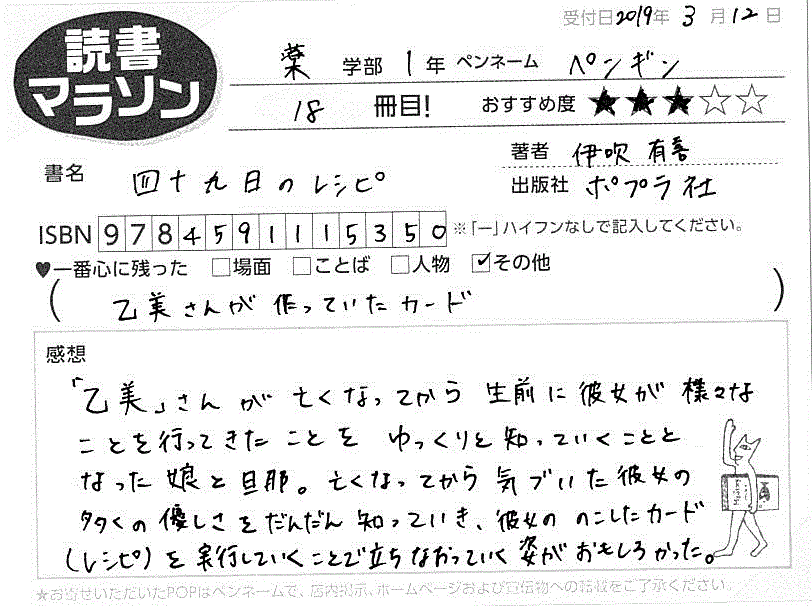 受付日2019年 3月12日
読書
マラソン
薬 学部 1年 ペンネーム ペンギン
18 冊目! おすすめ度 ★★★☆☆
書名 四十九日のレシピ
著者 伊吹 有喜
出版社 ポプラ社
ISBN 9784591115350 ※「ー」ハイフンなしで記入してください。
♥一番心に残った □場面 □ことば □人物 ☑その他
(乙美さんが作っていたカード)
感想
「乙美」さんが亡くなってから生前に彼女が様々な
ことを行ってきたことをゆっくりと知っていくことと
なった娘と旦那。亡くなってから気づいた彼女の
多くの優しさをだんだん知っていき、彼女ののこしたカード
(レシピ)を実行していくことで立ちなおっていく姿がおもしろかった。
★お寄せいただいたPOPはペンネームで、店内掲示、ホームページおよび宣伝物への転載をご了承ください。